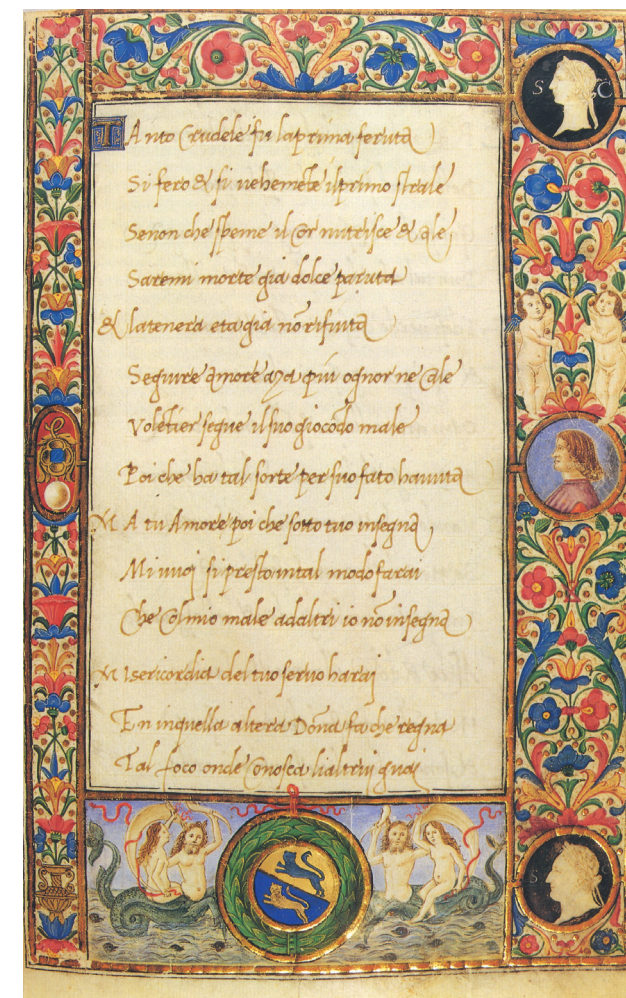 S C
TAnto Crudele fu laprima feruta
Si fero & si uehemēte ilprimo strale
Senon che speme il Cor nutrisce & ale
Saremi morte gia dolce paruta
& latenera eta gia nō rifiuta
Seguire Amore aza piu ognor ne Cale
Volētier segue il suo giocōdo male
Poi che ha tal sorte per suo fato hauuta
MA tu Amore poi che sotto tuo insegna
Mi uuoj si presto intal modo farai
Che Colmio male adaltri io nō insegna
Misericordia del tuo seruo haraj
En inquella altera Dōna fa che regna
Tal foco onde Conosca lialtrui guaj
S